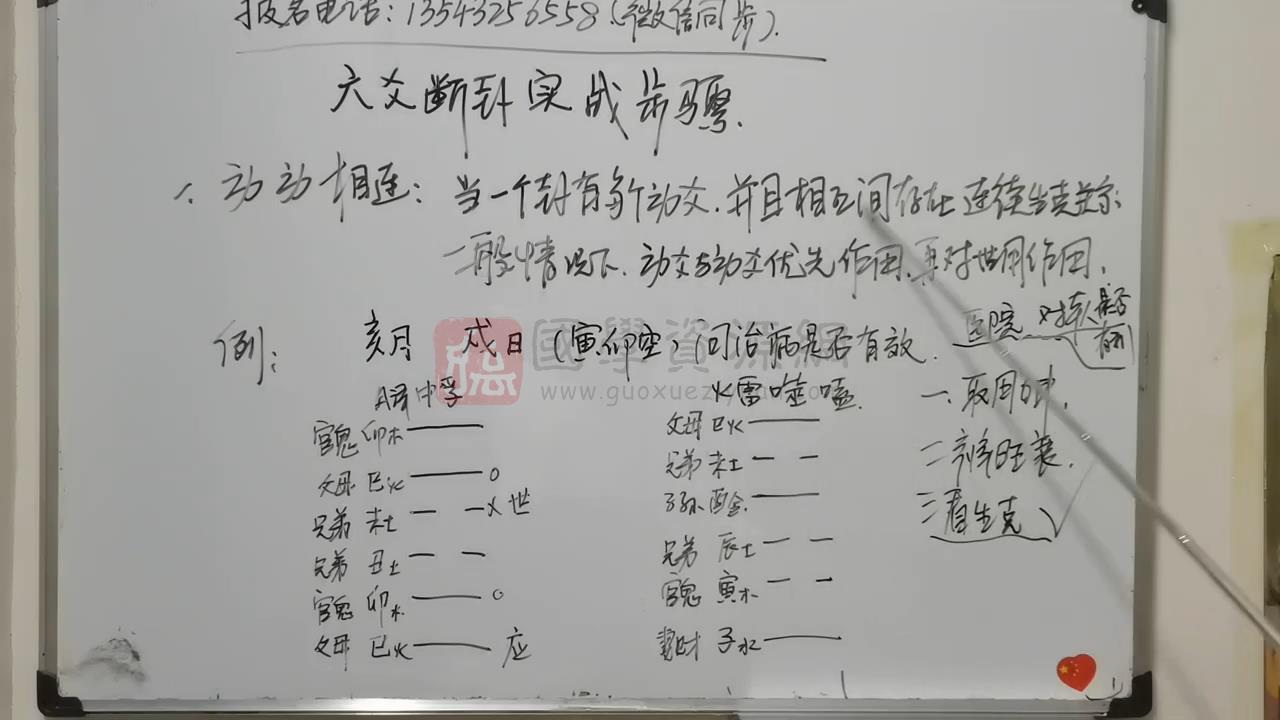 报名电话：13543256558（微信同步）.
六爻断卦实战步骤.
1、动动相连：当一个卦有多个动爻.并且相互间存在连续生克关系
一般情况下.动爻与动爻优先作用.再对世用作用.
例：亥月 戌日（寅卯空）问治病是否有效. 医院对我是否有利
國學資源網
www.guoxuez
风泽中孚 火雷噬嗑.
官鬼 卯木 父母 巳火
父母 巳火 O 兄弟 未土
兄弟 未土 X 世 子孙 酉金.
兄弟 丑土 兄弟 辰土
官鬼 卯木. O 官鬼 寅木
父母 巳火 应 妻财 子水
一.取用神.
二.审旺衰.
三.看生克